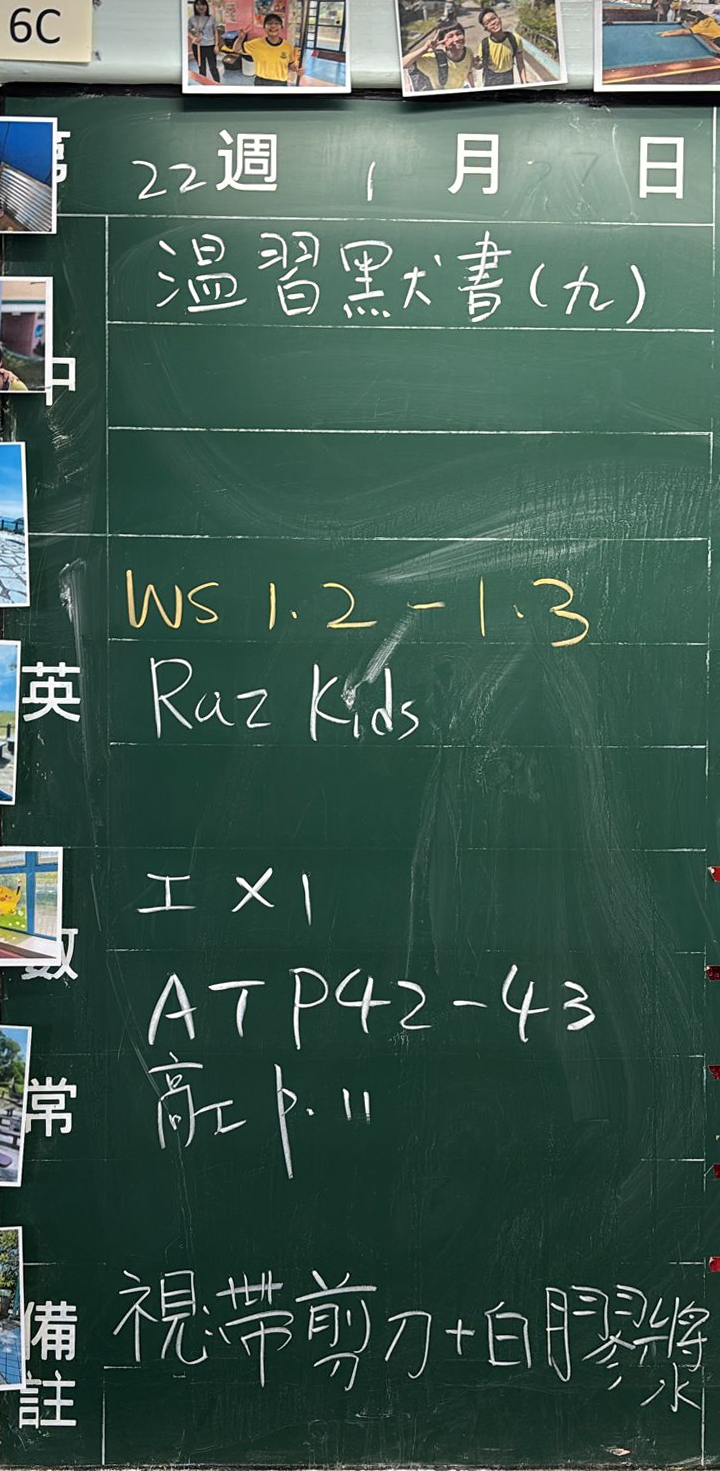 6C
第22週 1月27日
中
温習默書(九)
英
WS 1.2-1.3
Raz Kids
數
工×1
AT P42-43
常
高工 p.11
備註
視:帶剪刀+白膠漿水